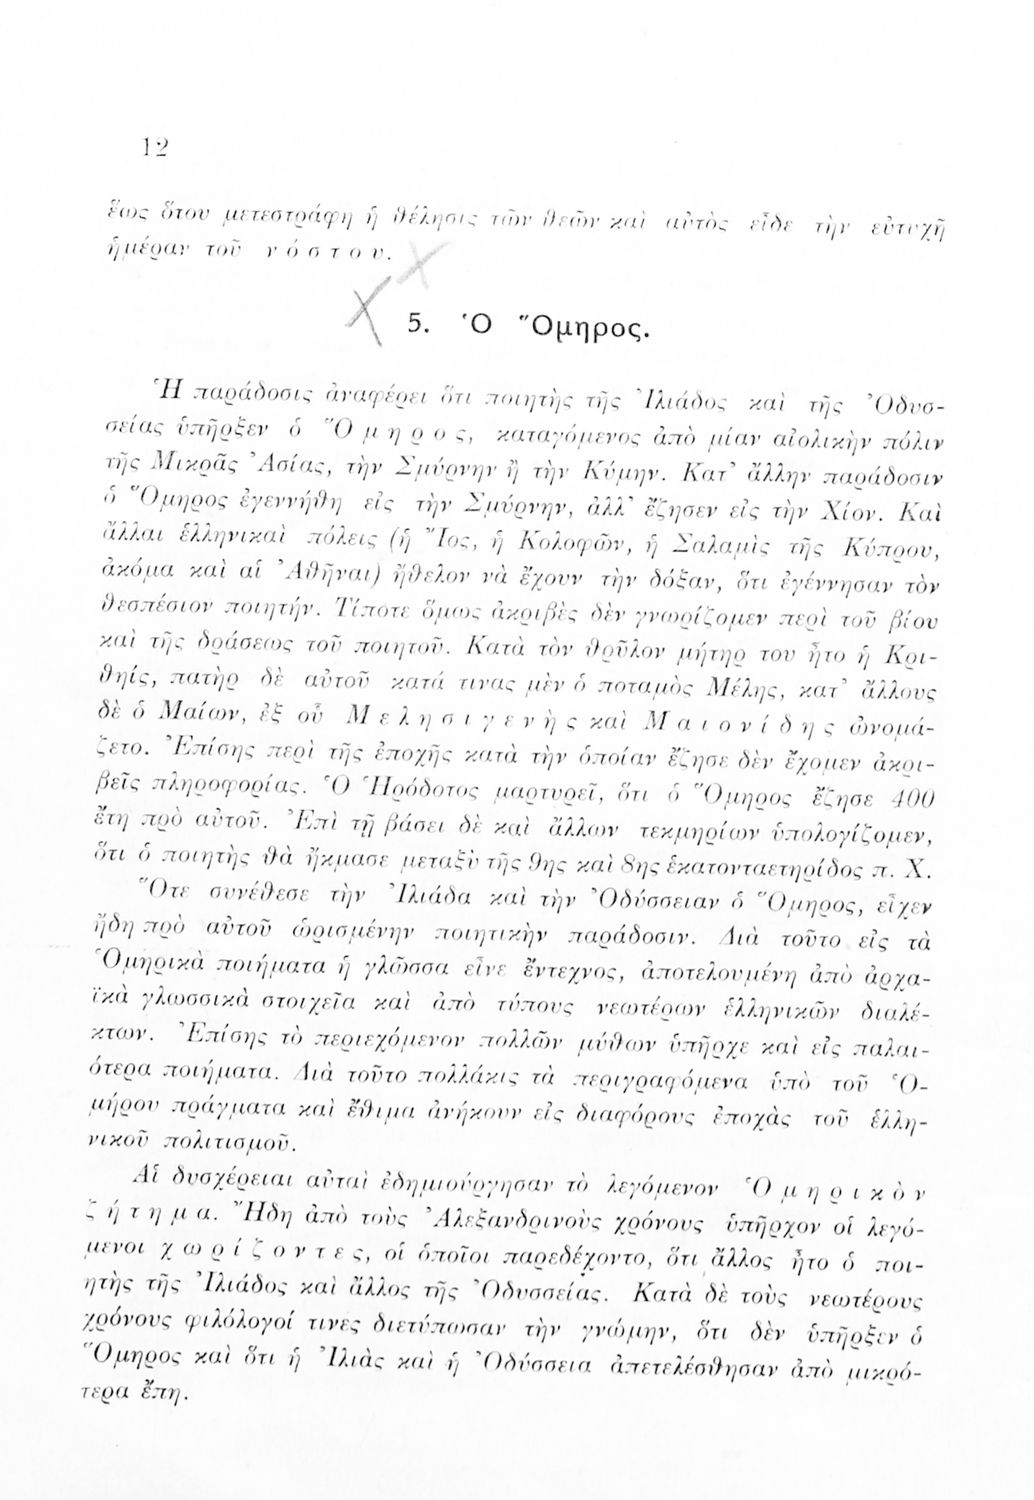 12
ἕως ὅτου μετεστράφη ἡ θέλησις τῶν θεῶν καὶ αὐτὸς εἶδε τὴν εὐτυχῆ
ἡμέραν τοῦ ν ό σ τ ο υ.
5. Ὁ Ὅμηρος.
Ἡ παράδοσις ἀναφέρει ὅτι ποιητὴς τῆς Ἰλιάδος καὶ τῆς Ὀδυσ-
σείας ὑπῆρξεν ὁ Ὅ μ η ρ ο ς, καταγόμενος ἀπὸ μίαν αἰολικὴν πόλιν
τῆς Μικρᾶς Ἀσίας, τὴν Σμύρνην ἢ τὴν Κύμην. Κατ’ ἄλλην παράδοσιν
ὁ Ὅμηρος ἐγεννήθη εἰς τὴν Σμύρνην, ἀλλ’ ἔζησεν εἰς τὴν Χίον. Καὶ
ἄλλαι ἑλληνικαὶ πόλεις (ἡ Ἴος, ἡ Κολοφῶν, ἡ Σαλαμὶς τῆς Κύπρου,
ἀκόμα καὶ αἱ Ἀθῆναι) ἤθελον νὰ ἔχουν τὴν δόξαν, ὅτι ἐγέννησαν τὸν
θεσπέσιον ποιητήν. Τίποτε ὅμως ἀκριβὲς δὲν γνωρίζομεν περὶ τοῦ βίου
καὶ τῆς δράσεως τοῦ ποιητοῦ. Κατὰ τὸν θρῦλον μήτηρ του ἦτο ἡ Κρι-
θηίς, πατὴρ δὲ αὐτοῦ κατά τινας μὲν ὁ ποταμὸς Μέλης, κατ’ ἄλλους
δὲ ὁ Μαίων, ἐξ οὗ Μ ε λ η σ ι γ ε ν ὴ ς καὶ Μ α ι ο ν ί δ η ς ὠνομά-
ζετο. Ἐπίσης περὶ τῆς ἐποχῆς κατὰ τὴν ὁποίαν ἔζησε δὲν ἔχομεν ἀκρι-
βεῖς πληροφορίας. Ὁ Ἡρόδοτος μαρτυρεῖ, ὅτι ὁ Ὅμηρος ἔζησε 400
ἔτη πρὸ αὐτοῦ. Ἐπὶ τῇ βάσει δὲ καὶ ἄλλων τεκμηρίων ὑπολογίζομεν,
ὅτι ὁ ποιητὴς θὰ ἤκμασε μεταξὺ τῆς 9ης καὶ 8ης ἑκατονταετηρίδος π. Χ.
Ὅτε συνέθεσε τὴν Ἰλιάδα καὶ τὴν Ὀδύσσειαν ὁ Ὅμηρος, εἶχεν
ἤδη πρὸ αὐτοῦ ὡρισμένην ποιητικὴν παράδοσιν. Διὰ τοῦτο εἰς τὰ
Ὁμηρικὰ ποιήματα ἡ γλῶσσα εἶνε ἔντεχνος, ἀποτελουμένη ἀπὸ ἀρχα-
ϊκὰ γλωσσικὰ στοιχεῖα καὶ ἀπὸ τύπους νεωτέρων ἑλληνικῶν διαλέ-
κτων. Ἐπίσης τὸ περιεχόμενον πολλῶν μύθων ὑπῆρχε καὶ εἰς παλαι-
ότερα ποιήματα. Διὰ τοῦτο πολλάκις τὰ περιγραφόμενα ὑπὸ τοῦ Ὁ-
μήρου πράγματα καὶ ἔθιμα ἀνήκουν εἰς διαφόρους ἐποχὰς τοῦ ἑλλη-
νικοῦ πολιτισμοῦ.
Αἱ δυσχέρειαι αὐταὶ ἐδημιούργησαν τὸ λεγόμενον Ὁ μ η ρ ι κ ὸ ν
ζ ή τ η μ α. Ἤδη ἀπὸ τοὺς Ἀλεξανδρινοὺς χρόνους ὑπῆρχον οἱ λεγό-
μενοι χ ω ρ ί ζ ο ν τ ε ς, οἱ ὁποῖοι παρεδέχοντο, ὅτι ἄλλος ἦτο ὁ ποι-
ητὴς τῆς Ἰλιάδος καὶ ἄλλος τῆς Ὀδυσσείας. Κατὰ δὲ τοὺς νεωτέρους
χρόνους φιλόλογοί τινες διετύπωσαν τὴν γνώμην, ὅτι δὲν ὑπῆρξεν ὁ
Ὅμηρος καὶ ὅτι ἡ Ἰλιὰς καὶ ἡ Ὀδύσσεια ἀπετελέσθησαν ἀπὸ μικρό-
τερα ἔπη.